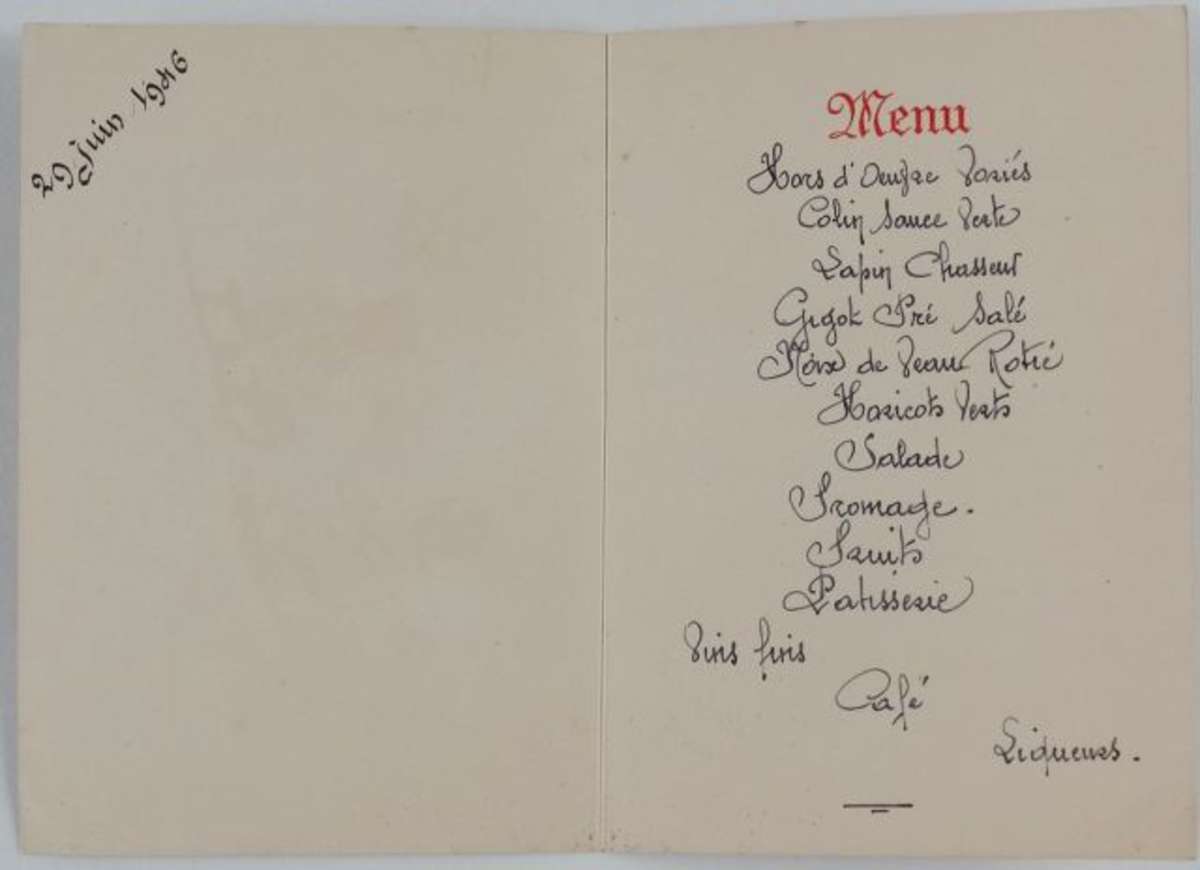 29 Juin 1946
Menu
Hors d'Oeuvre Variés
Colin Sauce Verte
Lapin Chasseur
Gigot Pré Salé
Noix de Veau Rotie
Haricots Verts
Salade
Fromage.
Fruits
Patisserie
Vins fins
Café
Liqueurs.